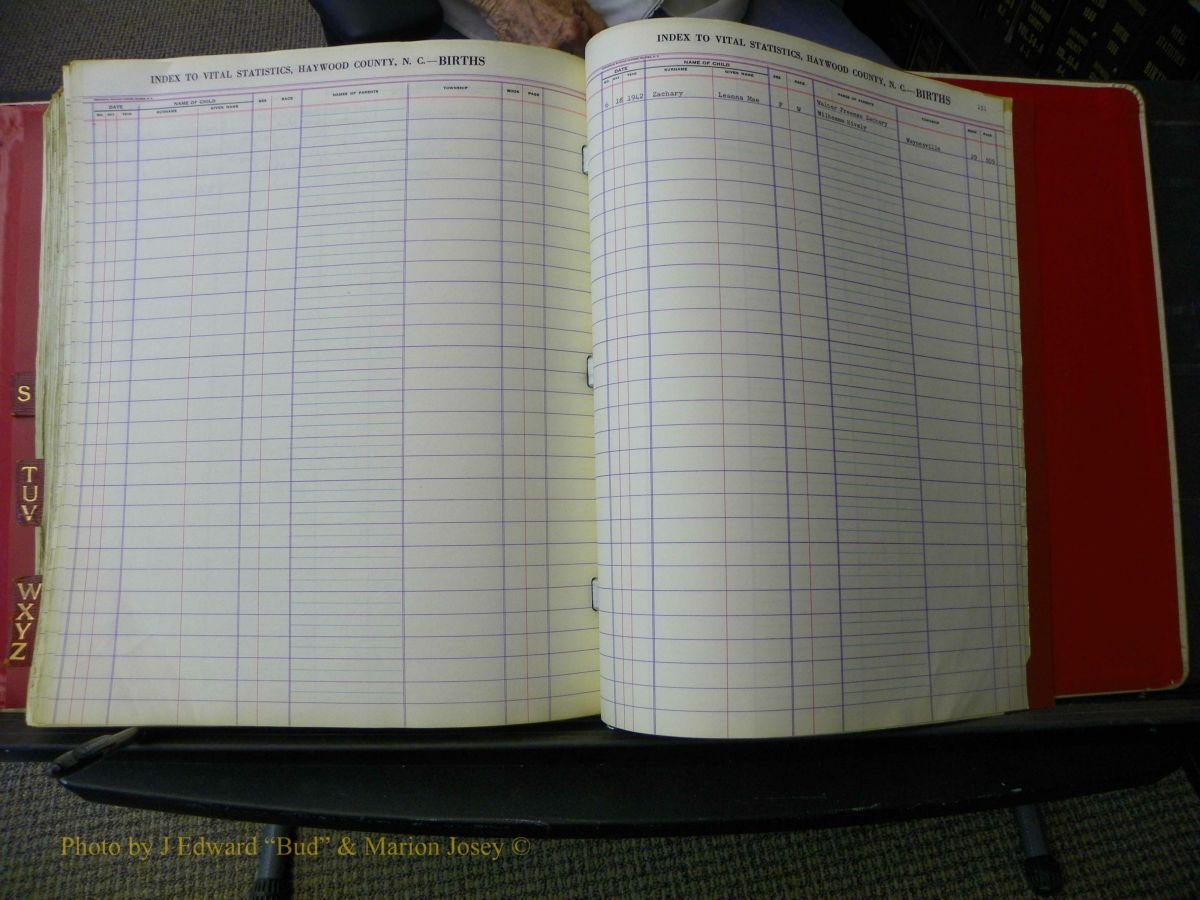 INDEX TO VITAL STATISTICS, HAYWOOD COUNTY, N. C.—BIRTHS
DATE NAME OF CHILD SEX RACE NAME OF PARENTS TOWNSHIP BOOK PAGE
MO. DAY YEAR SURNAME GIVEN NAME
INDEX TO VITAL STATISTICS, HAYWOOD COUNTY, N. C.—BIRTHS
151
DATE NAME OF CHILD SEX RACE NAME OF PARENTS TOWNSHIP BOOK PAGE
MO. DAY YEAR SURNAME GIVEN NAME
6 18 1942 Zachary Leanna Mae F W Walter Freeman Zachary
Waynesville
S
T
U
V
W
X
Y
Z
Photo by J Edward “Bud” & Marion Josey ©